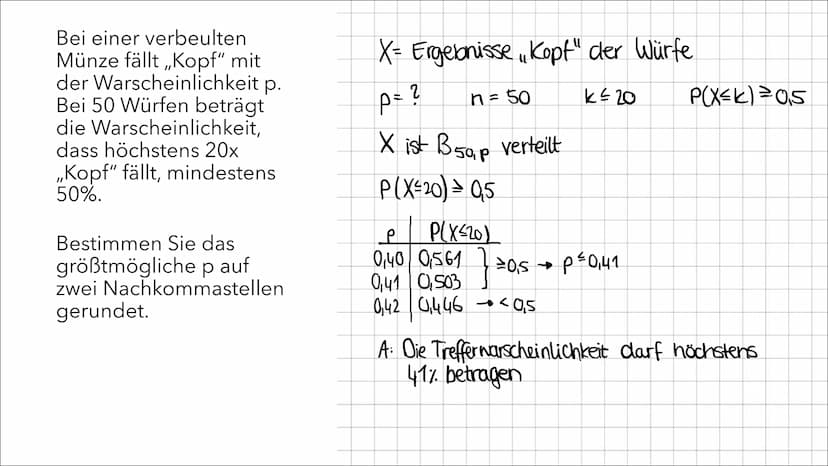 Bei einer verbeulten
Münze fällt „Kopf“ mit
der Warscheinlichkeit p.
Bei 50 Würfen beträgt
die Warscheinlichkeit,
dass höchstens 20x
„Kopf“ fällt, mindestens
50%.
Bestimmen Sie das
größtmögliche p auf
zwei Nachkommastellen
gerundet.
X= Ergebnisse „Kopf" der Würfe
p= ? n = 50 k ≤ 20 P(X≤k) ≥ 0,5
X ist B50,p verteilt
P(X≤20) ≥ 0,5
p P(X≤20)
0,40 0,561
0,41 0,503 } ≥0,5 → p ≤ 0,41
0,42 0,446 → < 0,5
A: Die Trefferwarscheinlichkeit darf höchstens
41% betragen